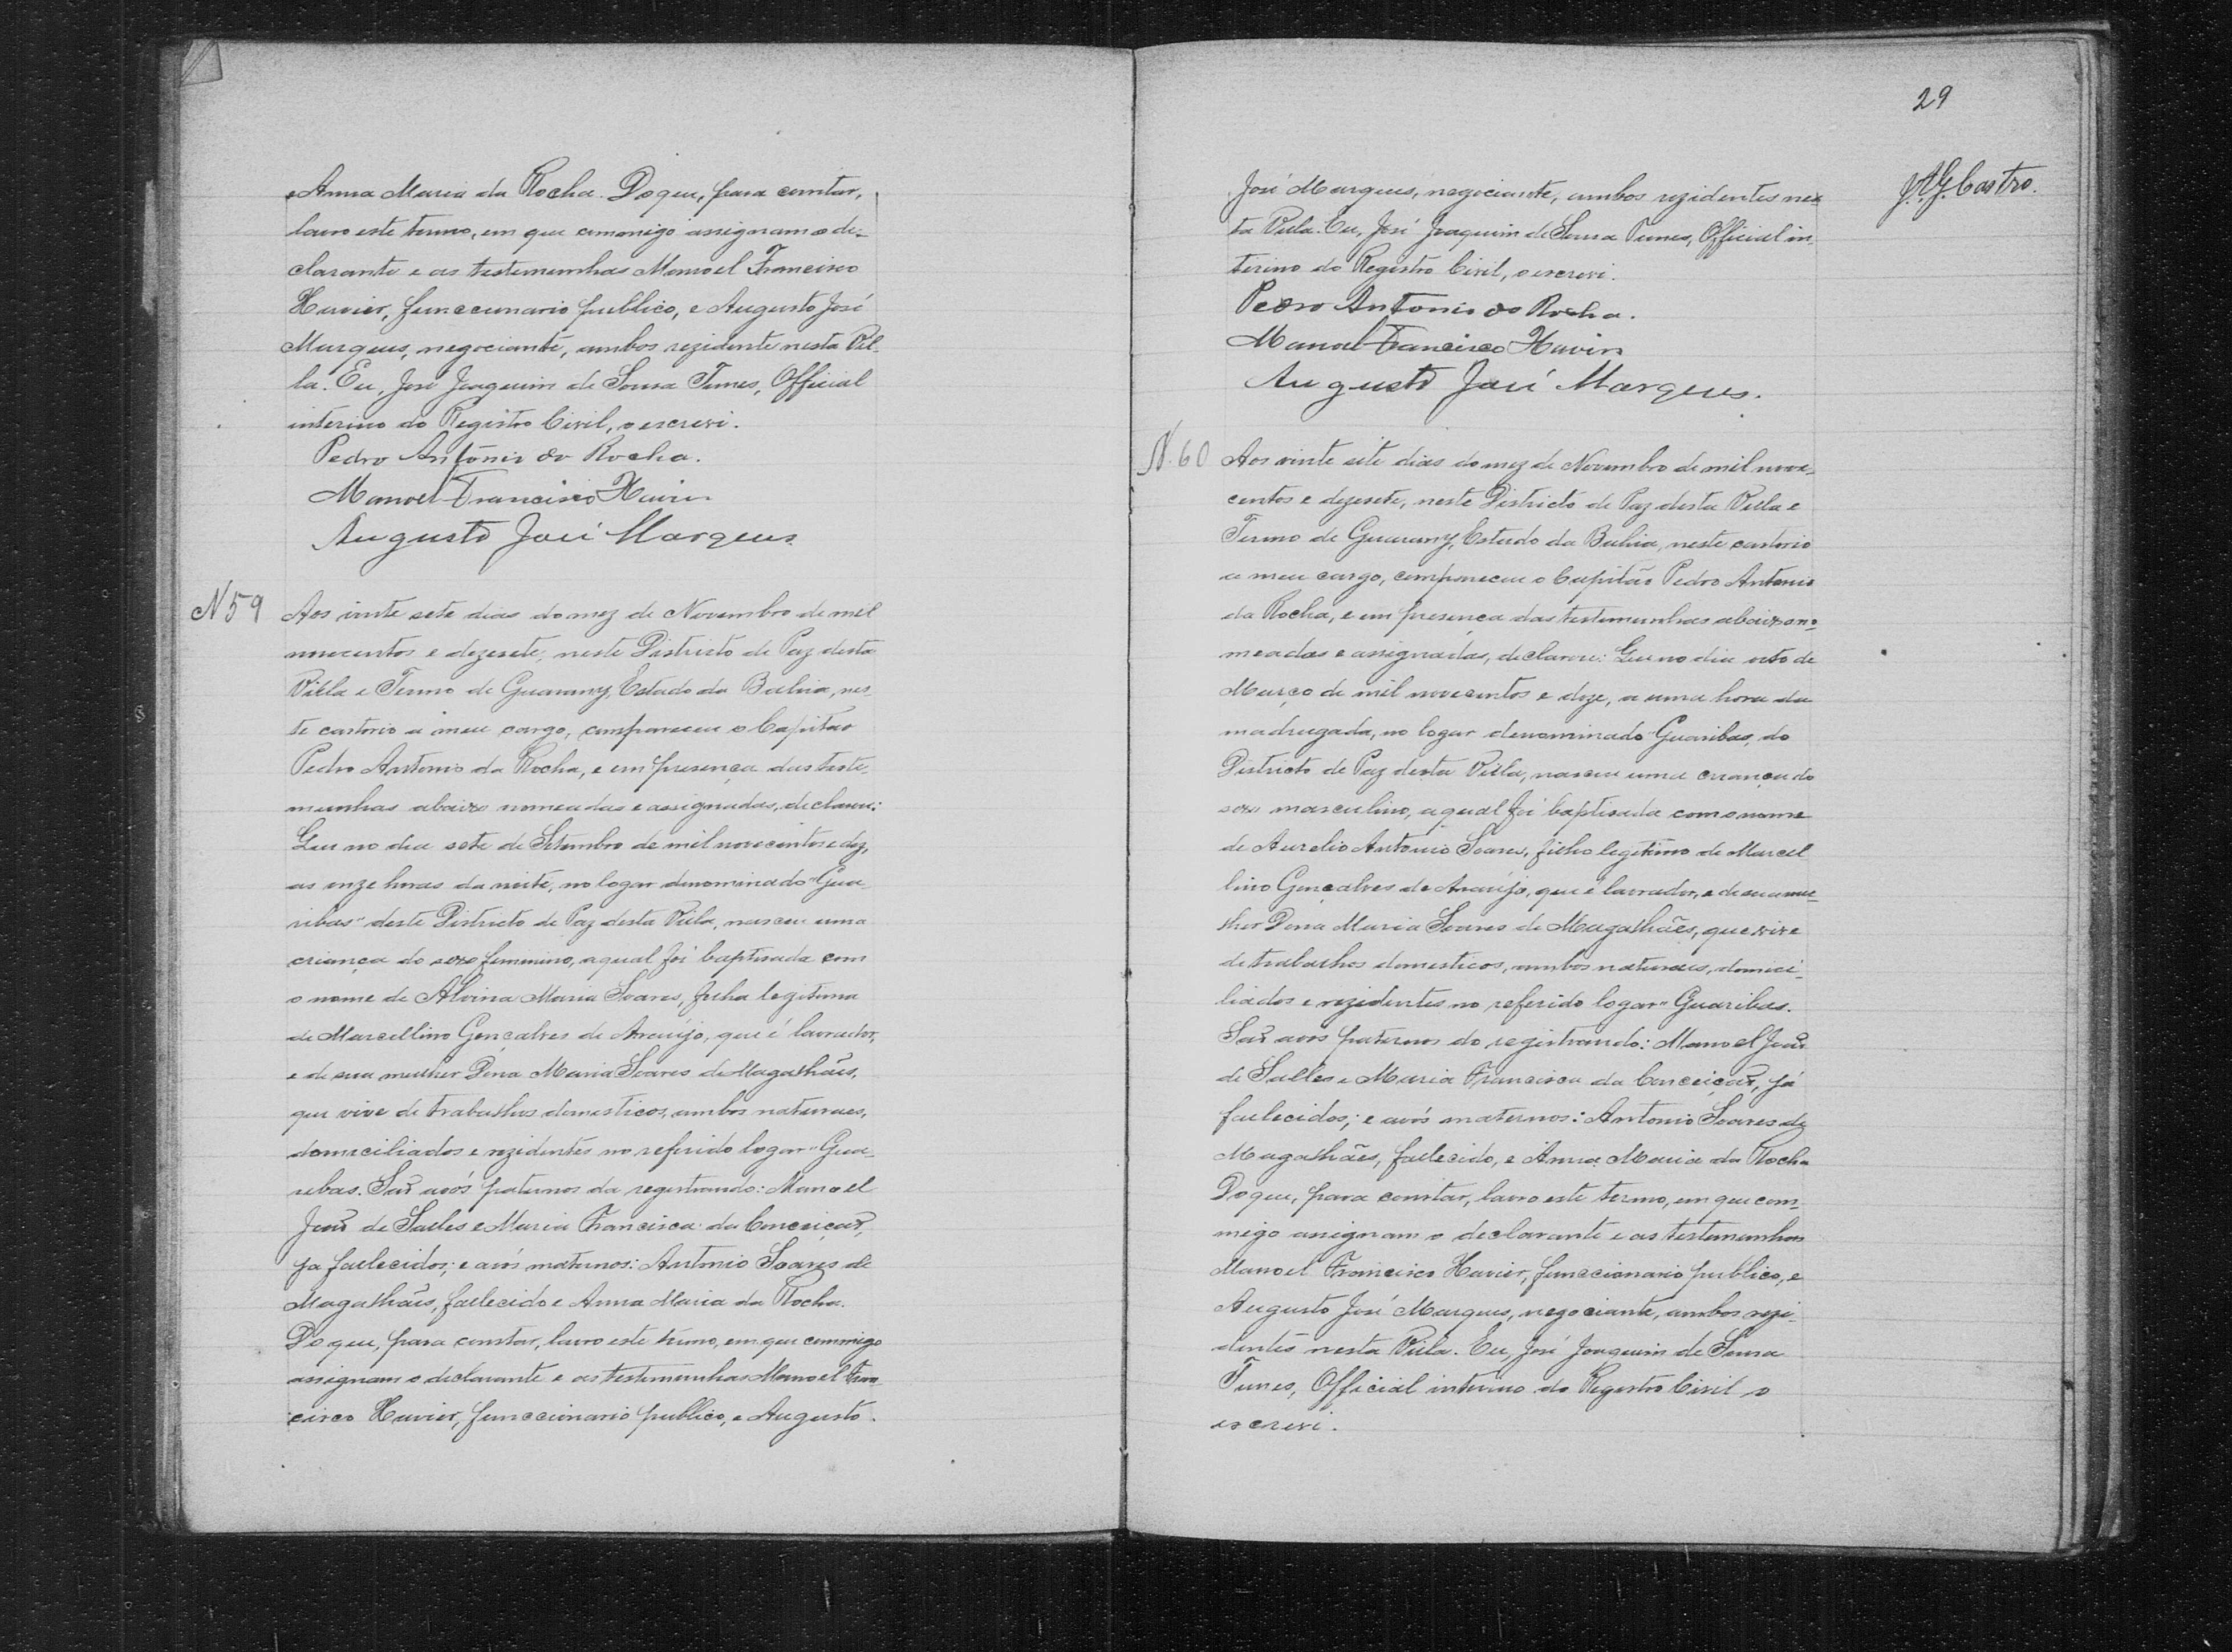 Anna Maria da Rocha. Do que, para constar,
lavro este termo, em que commigo assignam o de-
clarante e as testemunhas Manoel Francisco
Xavier, funccunario publico, e Augusto José
Marques, negociante, ambos rezidente nesta Vil-
la. Eu, José Joaquim de Sousa Tunes, Official
interino do Registro Civil, o escrevi.
Pedro Antonio da Rocha.
Manoel Francisco Xavier
Augusto José Marques.
N 59
Aos vinte sete dias do mez de Novembro de mil
novecentos e dezesete, neste Districto de Paz desta
Villa e Termo de Guarany, Estado da Bahia, nes-
te cartorio a meu cargo, compareceu o Capitão
Pedro Antonio da Rocha, e em presença das teste-
munhas abaixo nomeadas e assignadas, declarou:
Que no dia sete de Setembro de mil novecentos e dez,
as onze horas da noite, no logar denominado "Gua-
ribas" deste Districto de Paz desta Villa, nasceu uma
criança do sexo femenino, a qual foi baptisada com
o nome de Alvina Maria Soares, filha legitima
de Marcellino Gonçalves de Araujo, que é lavrador,
e de sua mulher Dona Maria Soares de Magalhães,
que vive de trabalhos domesticos, ambos naturaes,
domiciliados e rezidentes no referido logar "Gua-
ribas. São avós paternos da registrando: Manoel
João de Salles e Maria Francisca da Conceição,
ja fallecidos; e avós maternos: Antonio Soares de
Magalhães, fallecido e Anna Maria da Rocha.
Do que, para constar, lavro este termo, em que commigo
assignam o declarante e as testemunhas Manoel Fran
cisco Xavier, funccionario publico, e Augusto
29
José Marques, negociante, ambos rezidentes nes-
ta Villa. Eu, José Joaquim de Sousa Tunes, Official in
terino do Registro Civil, o escrevi.
Pedro Antonio da Rocha.
Manoel Francisco Xavier
Augusto José Marques.
Castro.
N. 60
Aos vinte sete dias do mez de Novembro de mil nove-
centos e dezesete, neste Districto de Paz desta Villa e
Termo de Guarany, Estado da Bahia, neste cartorio
a meu cargo, compareceu o Capitão Pedro Antonio
da Rocha, e em presença das testemunhas abaixo no-
meadas e assignadas, declarou: Que no dia oito de
Março de mil novecentos e doze, a uma hora da
madrugada, no logar denominado "Guaribas, do
Districto de Paz desta Villa, nasceu uma criança do
sexo masculino, a qual foi baptisada com o nome
de Aurelio Antonio Soares, filho legitimo de Marcel
lino Gonçalves de Araujo, que é lavrador, e de sua mu-
lher Dona Maria Soares de Magalhães, que vive
de trabalhos domesticos, ambos naturaes, domici-
liados e rezidentes no referido logar "Guaribas.
São avós paternos do registrando: Manoel João
de Salles e Maria Francisca da Conceição, já
fallecidos; e avós maternos: Antonio Soares de
Magalhães, fallecido, e Anna Maria da Rocha
Do que, para constar, lavro este termo, em que com-
migo assignam o declarante e as testemunhas
Manoel Francisco Xavier, funccionario publico, e
Augusto José Marques, negociante, ambos rezi-
dentes nesta Villa. Eu, José Joaquim de Sousa
Tunes, Official interino do Registro Civil o
escrevi.